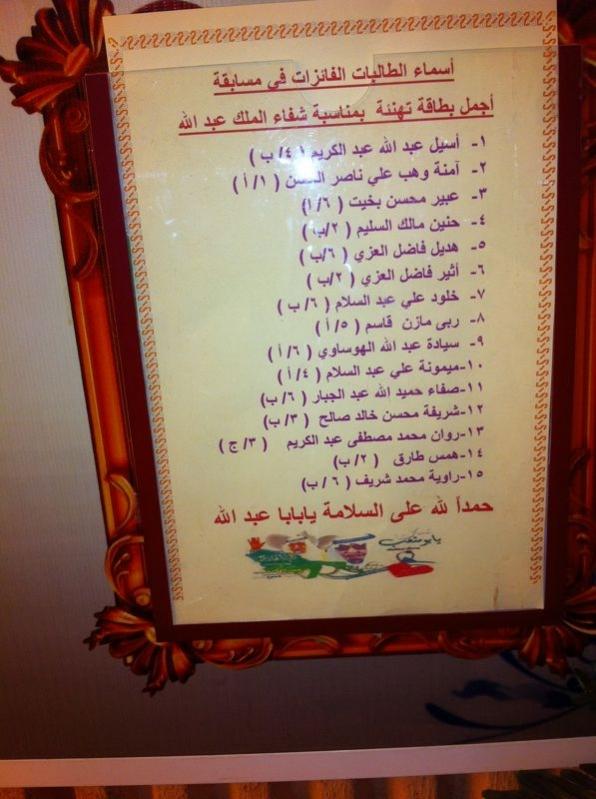 أسماء الطالبات الفائزات في مسابقة
أجمل بطاقة تهنئة بمناسبة شفاء الملك عبد الله
١- أسيل عبد الله عبد الكريم ( ٤/ ب )
٢- آمنة وهب علي ناصر ( ١/ أ )
٣- عبير محسن بخيت ( ٦/ ا)
٤- حنين مالك السليم ( ٢/ب )
٥- هديل فاضل العزي ( ٦/ب )
٦- أثير فاضل العزي ( ٢/ب )
٧- خلود علي عبد السلام ( ٦/ ب )
٨- ربى مازن قاسم ( ٥/ أ )
٩- سيادة عبد الله الهوساوي ( ٦/ أ )
١٠-ميمونة علي عبد السلام ( ٤/ أ )
١١-صفاء حميد الله عبد الجبار ( ٦/ ب)
١٢-شريفة محسن خالد صالح ( ٣/ ب)
١٣-روان محمد مصطفى عبد الكريم ( ٣/ ج )
١٤-همس طارق ( ٢/ ب)
١٥-راوية محمد شريف ( ٦ / ب)
حمداً لله على السلامة يابابا عبد الله
يابومتعب